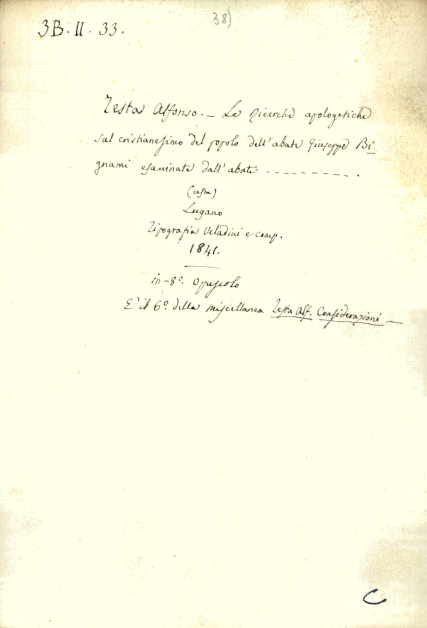 38)
3B. II. 33.
Testa Alfonso. — Le Ricerche apologetiche
sul cristianesimo del popolo dell'abate Giuseppe Bi-
gnami esaminate dall'abate - - - - - - - - - .
Lugano
Tipografia Veladini e comp.
1841.
in-8.º opuscolo
E' il 6º della miscellanea Testa Alf. Considerazioni —
C